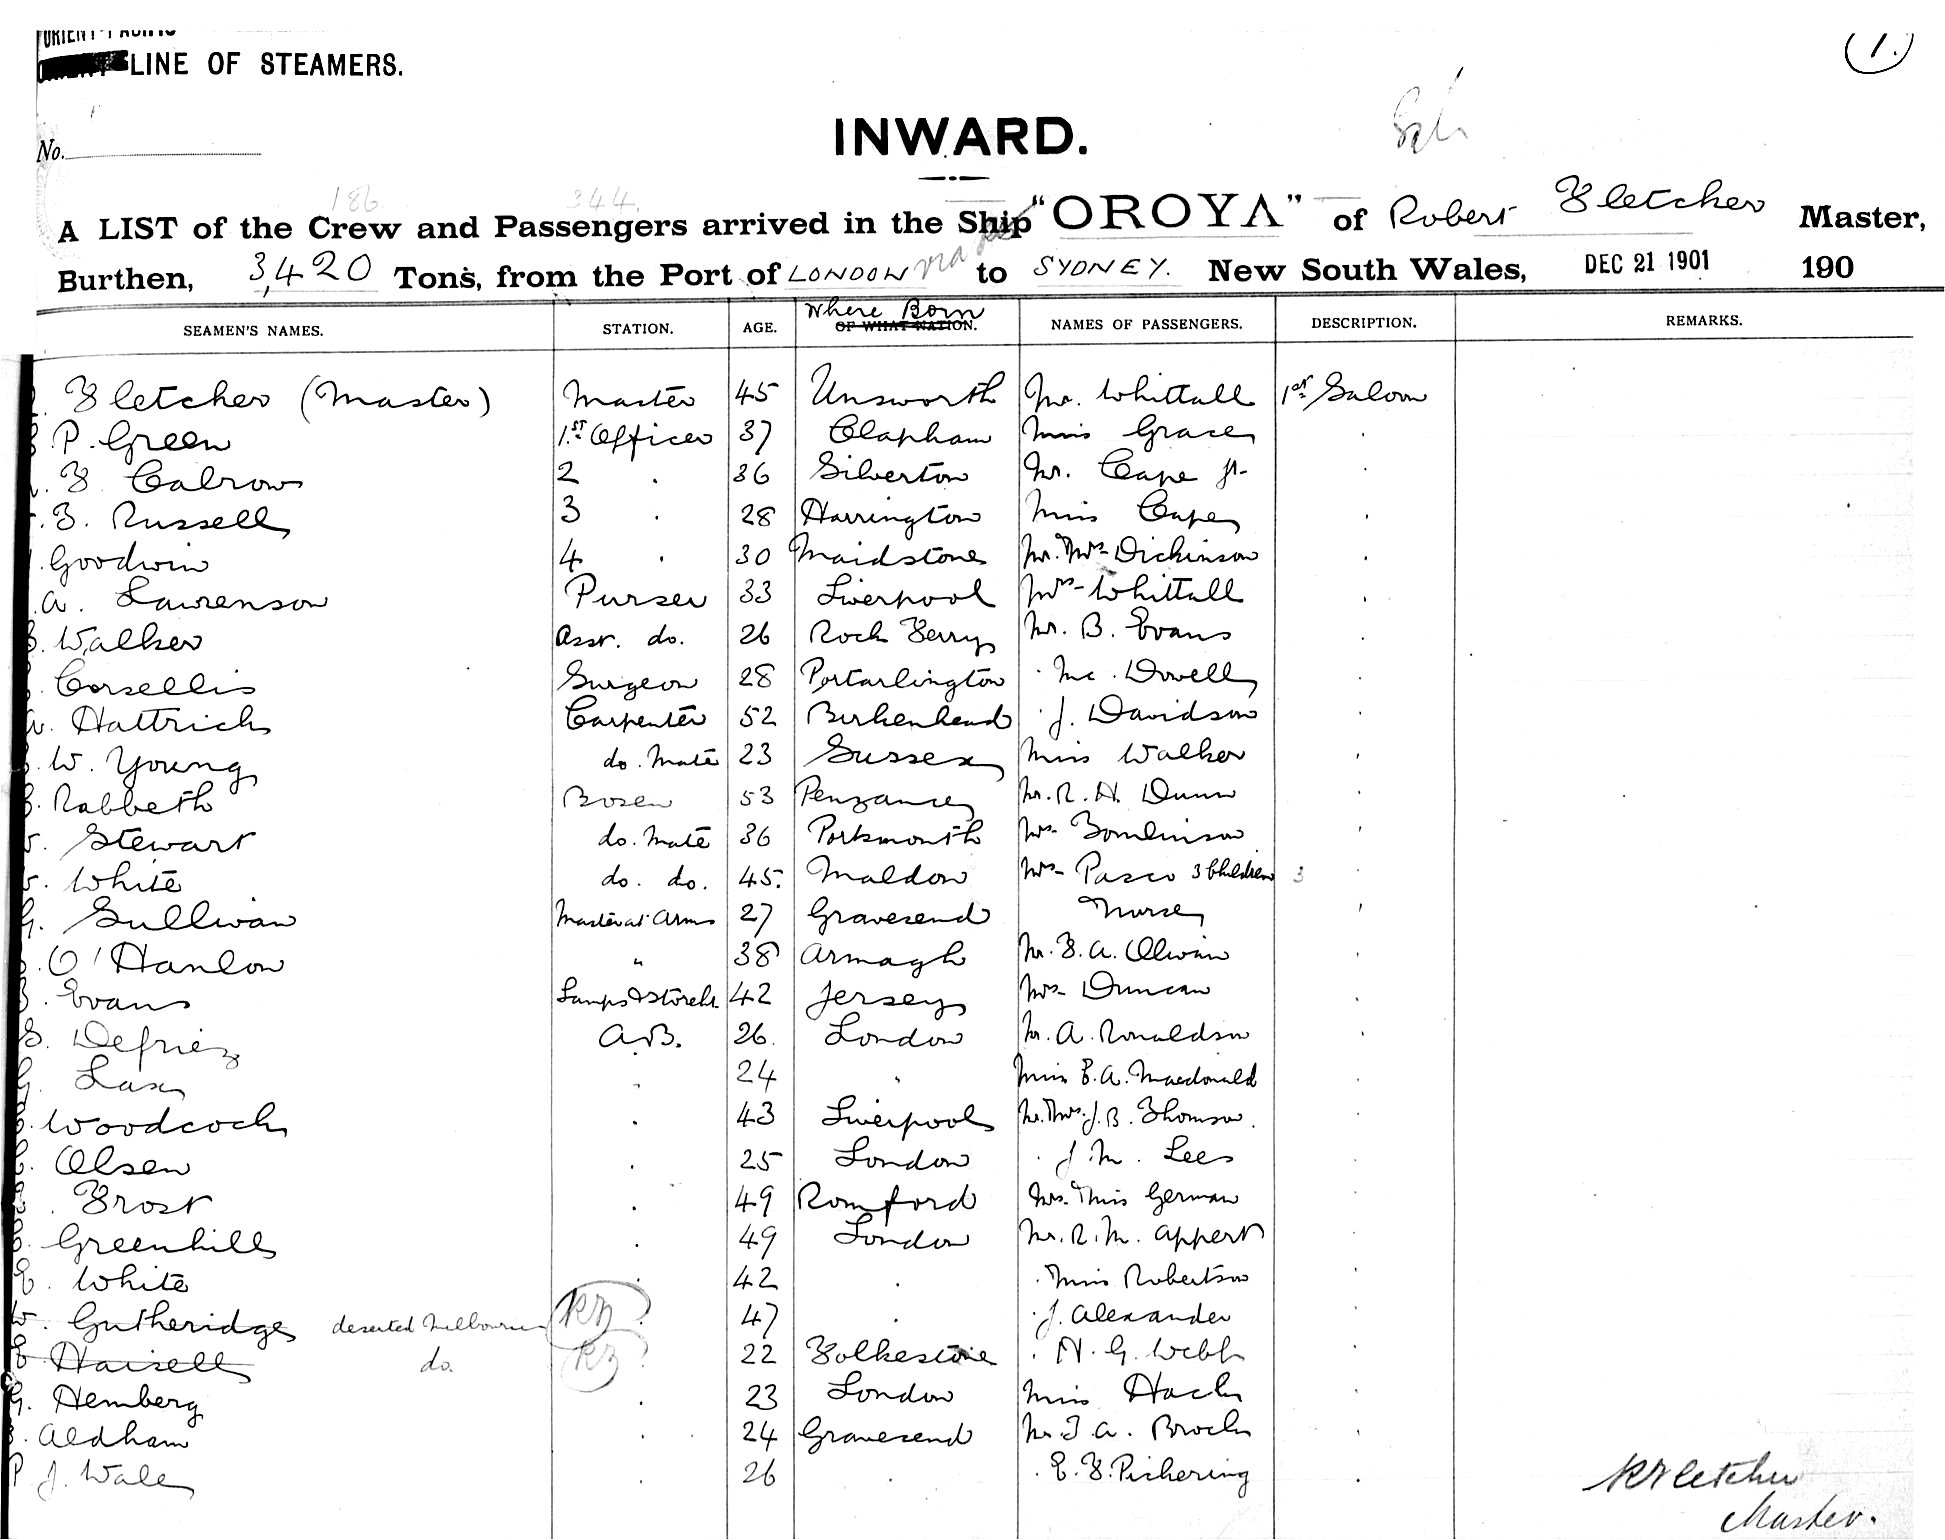 ORIENT-PACIFIC
LINE OF STEAMERS.
(1.)
No.
INWARD.
186 344
A LIST of the Crew and Passengers arrived in the Ship "OROYA" of Robert Fletcher Master,
Burthen, 3,420 Tons, from the Port of LONDON via to SYDNEY. New South Wales, DEC 21 1901 190
Where Born
SEAMEN'S NAMES. STATION. AGE. OF WHAT NATION. NAMES OF PASSENGERS. DESCRIPTION. REMARKS.
Fletcher (Master) Master 45 Unsworth Mr. Whittall 1st Saloon
P. Green 1st Officer 37 Clapham Miss Grace
F. Calrow 2 . 36 Silverton Mr. Cape Jr.
F. Russell 3 . 28 Harrington Miss Cape
Goodwin 4 . 30 Maidstone Mr. Mrs Dickinson
A. Lawrenson Purser 33 Liverpool Mrs Whittall
Walker Asst. do. 26 Rock Ferry Mr. B. Evans
Corsellis Surgeon 28 Portarlington . Mc Dowell
Hattrick Carpenter 52 Birkenhead . J. Davidson
W. Young do. Mate 23 Sussex Miss Walker
Rabbeth Bosen 53 Penzance Mr. R. H. Dunn
Stewart do. Mate 36 Portsmouth Mrs Tomlinson
White do. do. 45. Maldon Mrs Pasco 3 Children 3
G. Sullivan Master at Arms 27 Gravesend Nurse
O'Hanlon " 38 Armagh Mr. F. A.
Evans Lamps & Storekr 42 Jersey Mrs Duncan
Defriez A.B. 26. London Mr. A. Ronaldson
G. Lax . 24 " Miss E. A. Macdonald
Woodcock . 43 Liverpool Mr. Mrs. J. B. Thomson.
Olsen . 25 London . J. M. Lees
Frost . 49 Romford Mrs. Miss German
Greenhill . 49 London Mr. R. M. Appert
E. White . 42 . . Miss Robertson
W. Gutheridge deserted Melbourne 47 . . J. Alexander
E. Haisell do. 22 Folkestone . H. G. Webb
G. Hemberg . 23 London Miss Hack
Aldham . 24 Gravesend Mr. T. A. Brock
P J. Wale . 26 . . E. F. Pickering
R Fletcher
Master.